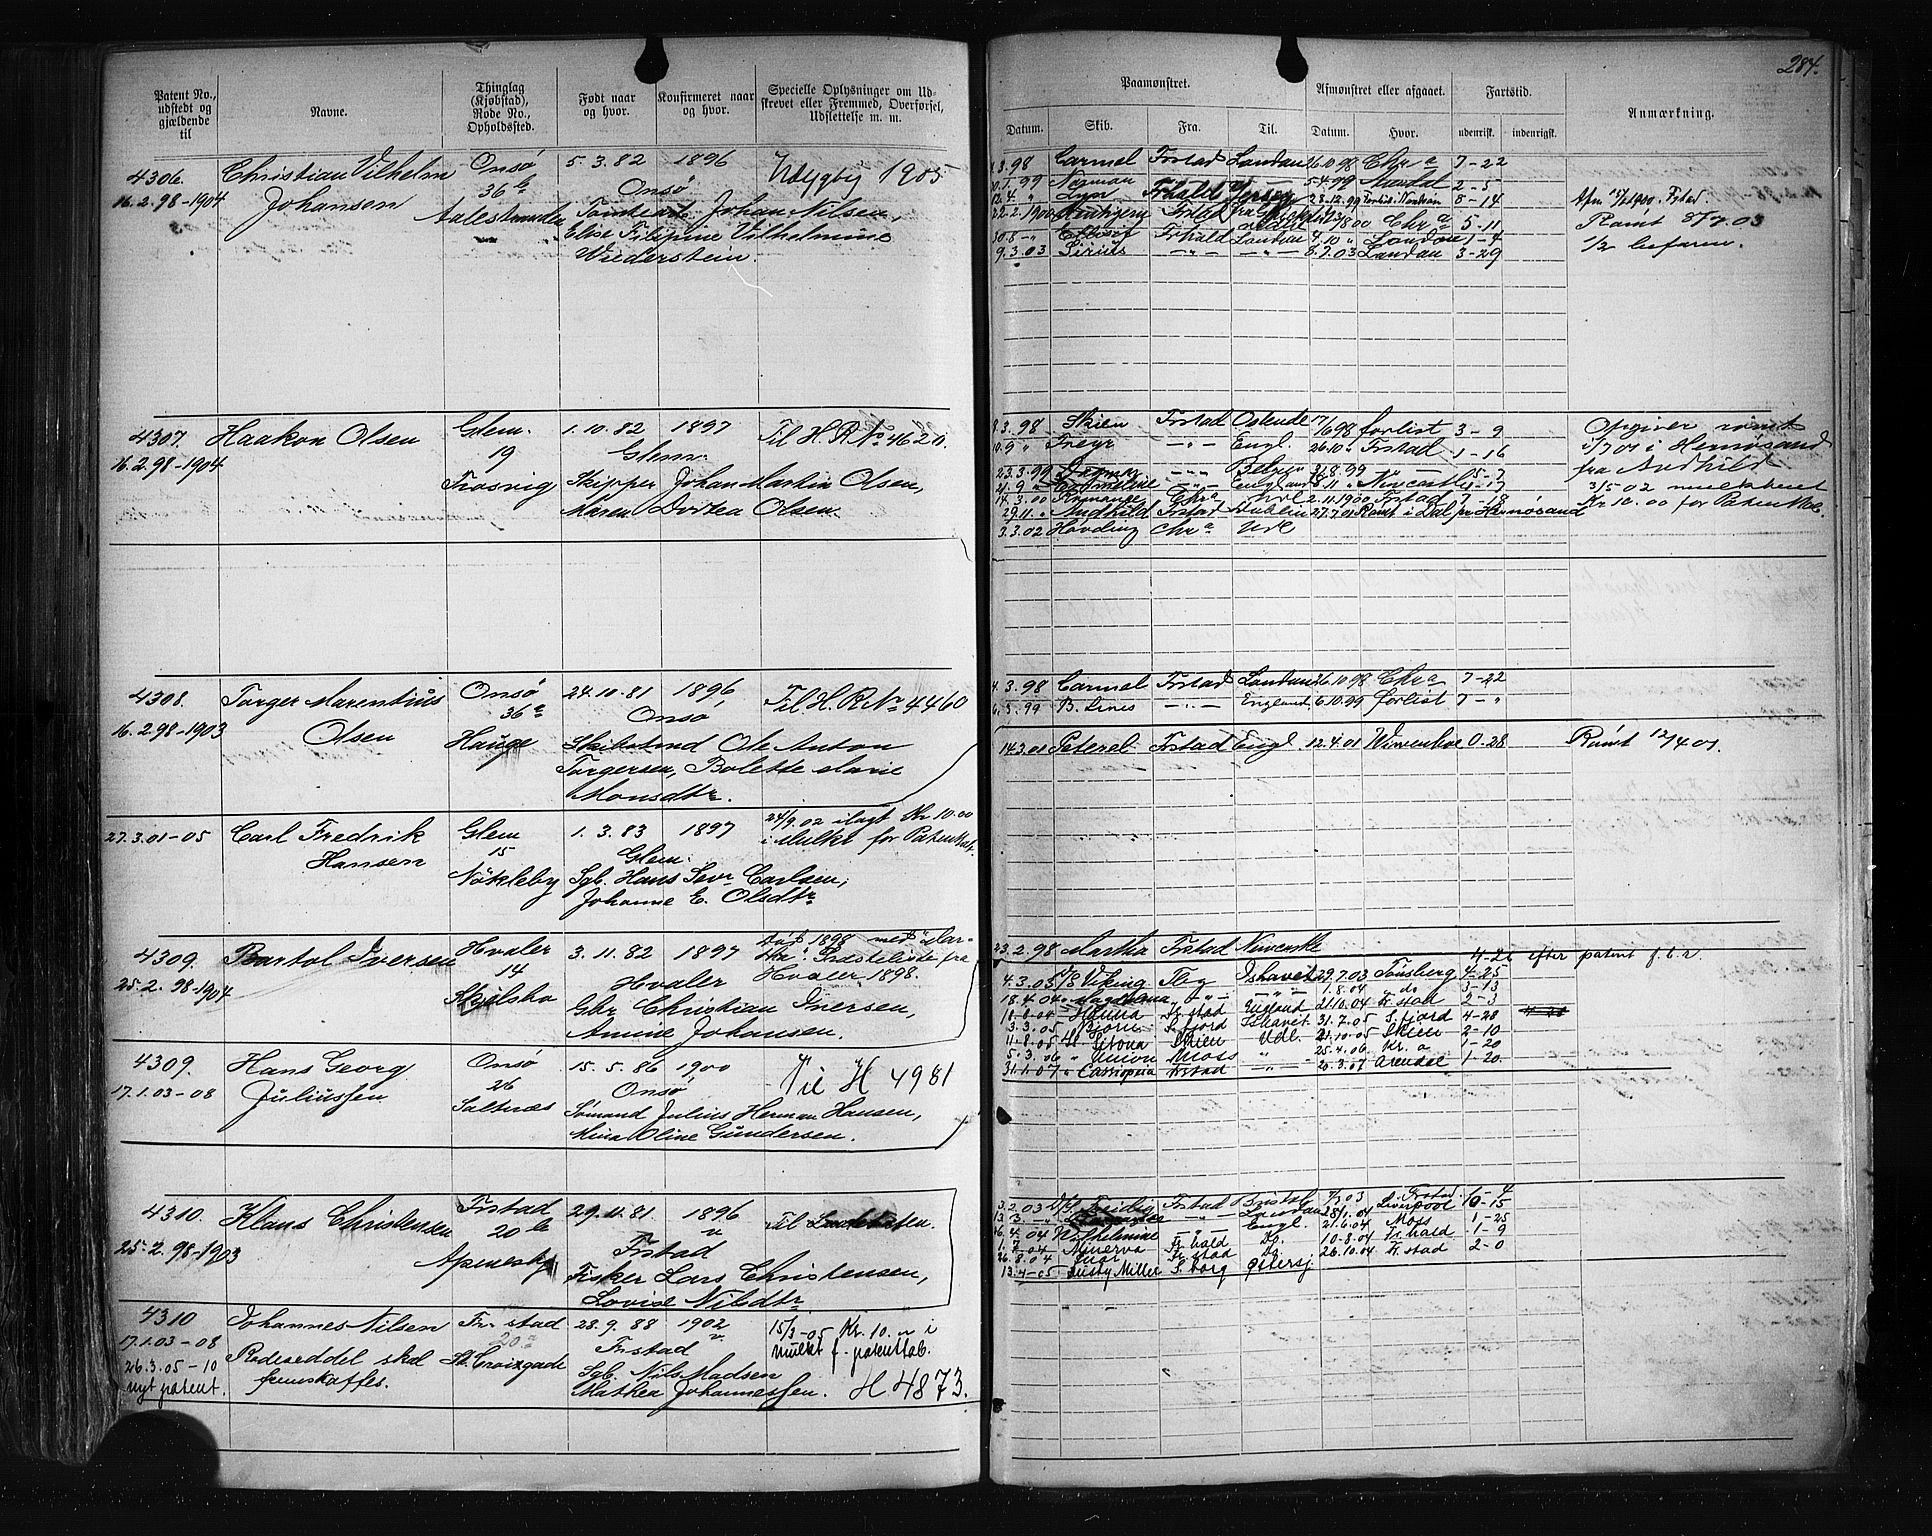 284.
Patent No., udstedt og gjældende til
Navne.
Thinglag (Kjøbstad), Rode No., Opholdssted.
Født naar og hvor.
Konfirmeret naar og hvor.
Specielle Oplysninger om Udskrevet eller Fremmed, Overførsel, Udslettelse m. m.
Paamønstret.
Afmønstret eller afgaaet.
Fartstid.
Anmærkning.
Datum. Skib. Fra. Til. Datum. Hvor. udenrigsk. indenrigsk.
4306. Christian Vilhelm Onsö 5.3.82 1896 Udygtig 1905
16.2.98-1904 Johansen 36 b Onsö
Johan Nilsen,
Elise Filipine Vilhelmine
Wiederstein.
.3.98 Carmel Frstad London 26.10.98 Chra 7-22
5.4.99 Arendal 2-5
23.12.99 8-14
22.2.1900 Frstad Chra 5-11
30.8 Frhald London 4.10 " London 1-4
9.3.03 Sirius -"- -"- 8.7.03 London 3-29
Afm 15/2 1900 Frstad.
Rømt 8/7.03
1/2 befaren.
4307. Haakon Olsen Glem. 1.10.82 1897 Til H.R. No 4620.
16.2.98-1904 19 Glem.
Trosvig Skipper Johan Martin Olsen,
Maren Dortea Olsen.
8.3.98 Skien Frstad Ostende 17/6 98 forlist 3-9
19.9 " Freyr -"- Engl. 26.10 " Frstad 1-16
23.3.99 Dagmar -"- Belgien 31.8.99 " — 5-7
21.9 " -"- England 8.11 " Newcastle 1-17
14.3.00 Romanoff Chra Hvl 2.11.1900 Frstad 7-18
29.11. " Audhild Frstad Dublin 27.7.01 Rømt i Dal pr Hernøsand
3.3.02 Høvding Chra Udl
Opgiver rømt
i/7 01 i Hernøsand
fra Audhild
3/5 02 mulkteret
Kr 10.00 for Patenttab.
4308. Torger Marentius Onsö 24.10.81 1896 Til H.R. No 4460
16.2.98-1903 Olsen 36 a Onsö
Hauge Skibstmd Ole Anton
Torgersen, Bolette Marie
Monsdtr.
4.3.98 Carmel Frstad London 26.10.98 Chra 7-22
6.3.99 B. Lines -"- England 6.10.99 forlist 7-"
14.3.01 Peterel Frstad Engl. 12.4.01 Wivenhoe 0-28 Rømt 12/4 01.
27.3.01-05 Carl Fredrik Glem 1.3.83 1897 24/9.02 ilagt Kr 10.00
Hansen 15 Glem. i Mulkt for Patenttab.
Nökleby Sgb. Hans Sevr Carlsen,
Johanne E. Olsdtr
4309. Bartol Iversen Hvaler 3.11.82 1897 død 1898 med "Mar-
25.2.98-1904 14 Hvaler tha". Præsteliste fra
Skjelsbo Gbr Christian Iversen, Hvaler 1898.
Amine Johansen.
23.2.98 Martha Frstad Newcastle
4-26 efter patent f.b.r.
4.3.03 S/S Viking Tbg Ishavet 29.7.03 Tönsberg 4-25
18.4.04 " Magdalena -"- -"- 1.8.04 do 3-13
18.8.04 " Helina Fr.stad England 21.10.04 Fr.stad 2-3
3.3.05 " Bjørn S.fjord Ishavet 31.7.05 S.fjord 4-28
4.8.05 Sitona Skien Udl. 21.10.05 Skien 2-10
5.3.06 " Union Moss " 25.4.06 Kr.a 1-20
31.1.07 " Cassiopeia Frstad -"- 20.3.07 Arendal 1-20.
4309. Hans Georg Onsö 15.5.86 1900 Til H 4981
17.1.03-08 Juliussen 26 Onsö
Saltnæs Sømand Julius Herman Hansen,
Mina Oline Gundersen.
4310. Klaus Christensen Frstad 29.11.81 1896 Til
25.2.98-1903 20 b Frstad
Apenesk
Fisker Lars Christensen,
Lovise Nilsdtr
3.2.03 Freidig Frstad Bristol 7/3 03 Frstad. 1-4
13.3. " -"- London 28/1.04 Liverpool 10-15
16.4.04 Wilhelmine " Engl. 21.6.04 Moss 1-25
1.7.04 Minerva Fr.hald Do. 10.8.04 Fr.hald 1-9
26.8.04 Fr.stad Do. 26.10.04 Fr.stad 2-0
13.4-05 Dusty Miller S.borg Østersj.
4310 Johannes Nilsen Fr.stad 28.9.88 1902 15/3-05 Kr. 10. " i
17.1.03-08 Rodeseddel skal 20a Frstad mulkt f. patenttab.
26.3.05-10 fremskaffes. St. Croixgade Sgb. Nils Madsen
nyt patent. Mathea Johannessen. H 4873.